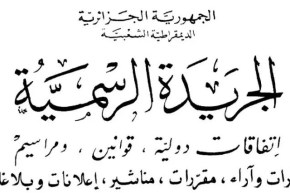 الجمهورية الجزائرية
الديمقراطية الشعبية
الجريدة الرسمية
اتفاقات دولية ، قوانين ، ومراسيم
رات وآراء ، مقررات ، مناشير ، إعلانات وبلاغا